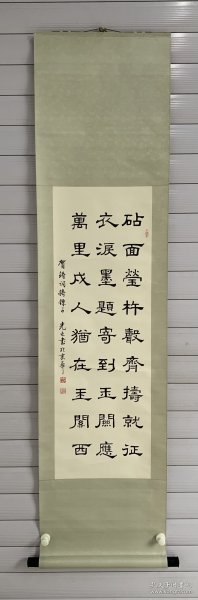 砧面瑩杵聲齊擣就征
衣淚墨題寄到玉關應
萬里戍人猶在玉關西
賀鑄詞擣練子